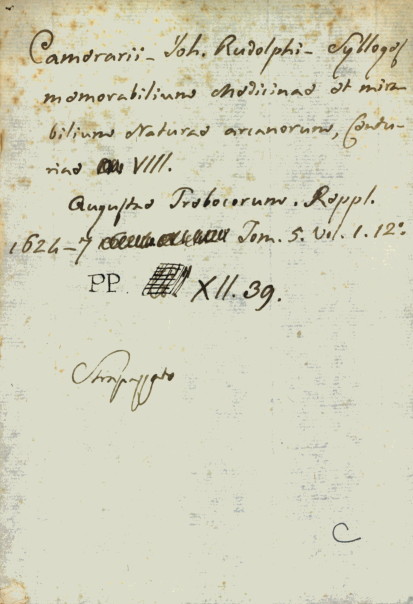 Camerarii - Joh. Rudolphi - Sylloges
memorabilium Medicinae et mira
bilium Naturae arcanorum, Centu
riae VIII.
Augustae Trebocorum. Reppl.
1624-7 Tom. 5. Vol. 1. 12°.
PP. XII. 39.
Strapazzato
C